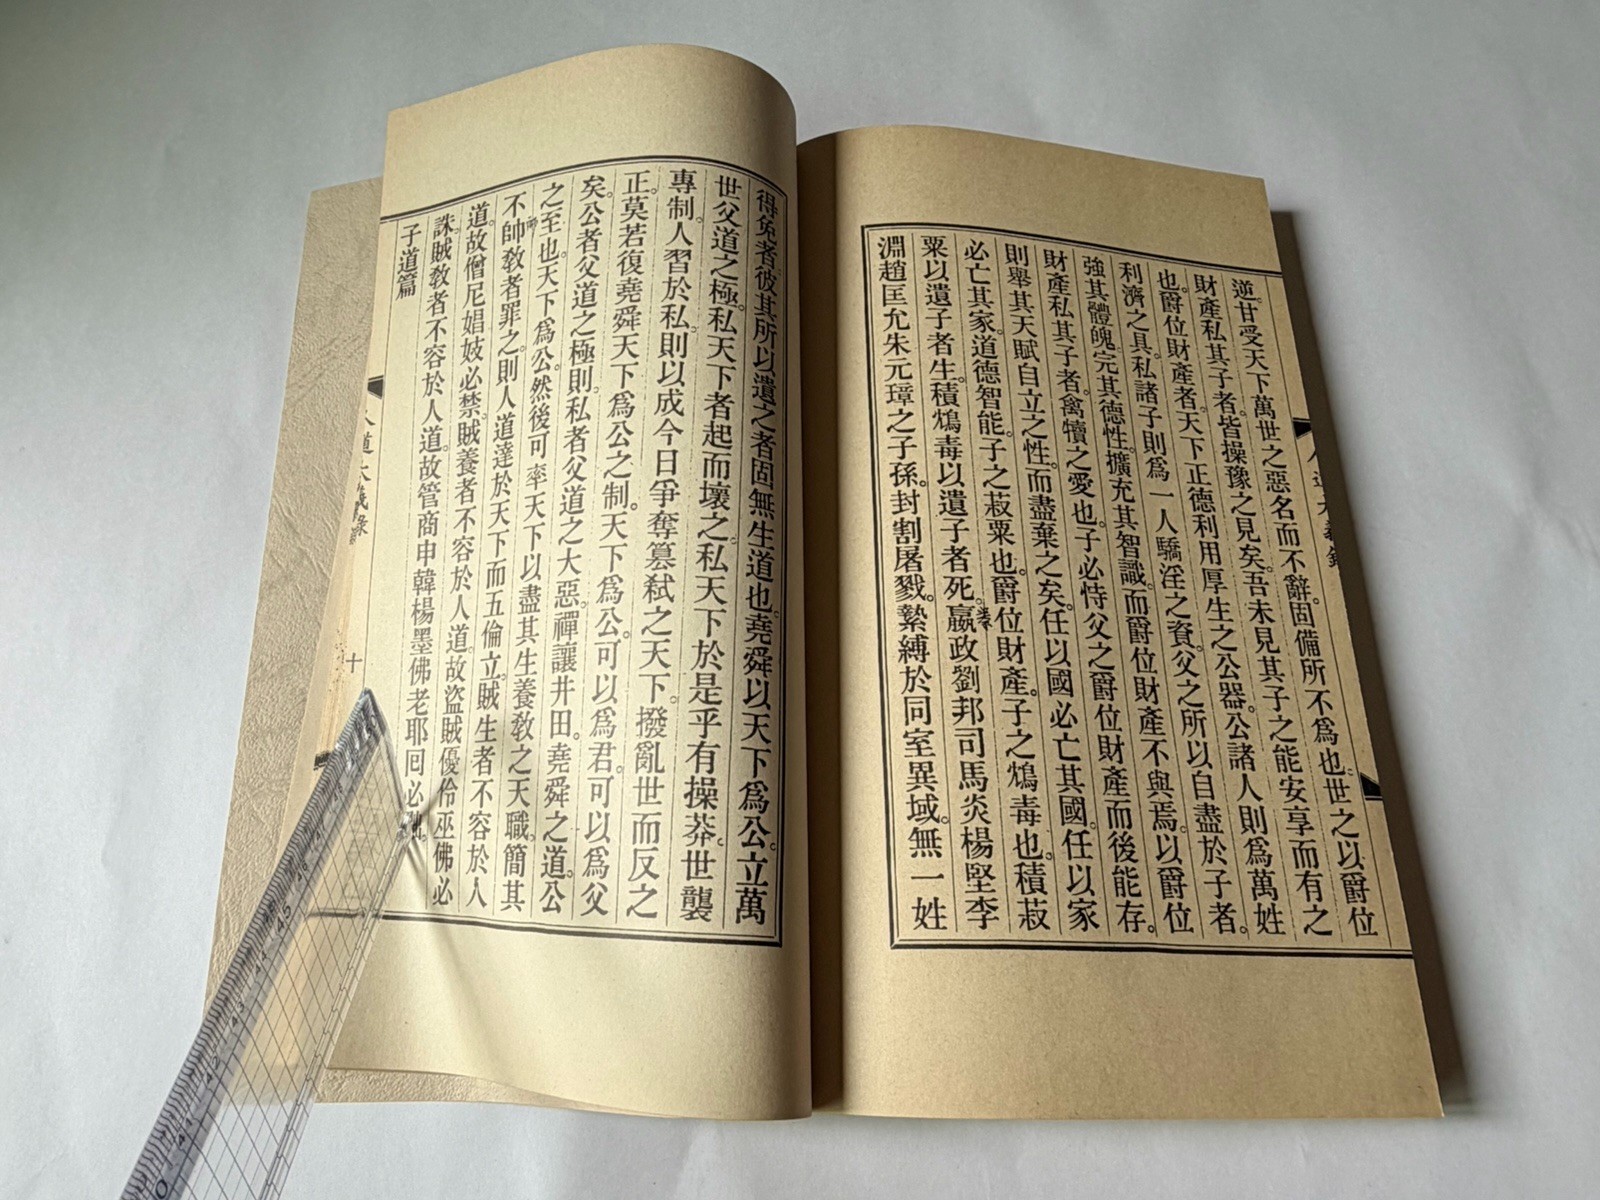 逆。甘受天下萬世之惡名而不辭。固備所不爲也。世之以爵位
財產私其子者。皆操豫之見矣。吾未見其子之能安享而有之
也。爵位財產者。天下正德利用厚生之公器。公諸人則爲萬姓
利濟之具。私諸子則爲一人驕淫之資。父之所以自盡於子者。
強其體魄。完其德性。擴充其智識。而爵位財產不與焉。以爵位
財產私其子者。禽犢之愛也。子必恃父之爵位財產而後能存。
則舉其天賦自立之性。而盡棄之矣。任以國必亡其國。任以家
必亡其家。道德智能。子之菽粟也。爵位財產。子之鴆毒也。積菽
粟以遺子者生。積鴆毒以遺子者死。嬴政劉邦司馬炎楊堅李
淵趙匡允朱元璋之子孫。封割屠戮。縶縛於同室異域。無一姓
得免者。彼其所以遺之者固無生道也。堯舜以天下爲公。立萬
世父道之極。私天下者起而壞之。私天下於是乎有操莽。世襲
專制。人習於私。則以成今日爭奪篡弒之天下。撥亂世而反之
正。莫若復堯舜天下爲公之制。天下爲公。可以爲君。可以爲父
矣。公者父道之極則。私者父道之大惡。禪讓井田。堯舜之道。公
之至也。天下爲公。然後可率天下以盡其生養教之天職。簡其
不帥教者罪之。則人道達於天下而五倫立。賊生者不容於人
道。故僧尼娼妓必禁。賊養者不容於人道。故盜賊優伶巫佛必
誅。賊教者不容於人道。故管商申韓楊墨佛老耶回必
子道篇
人道大義錄
十
人道大義錄